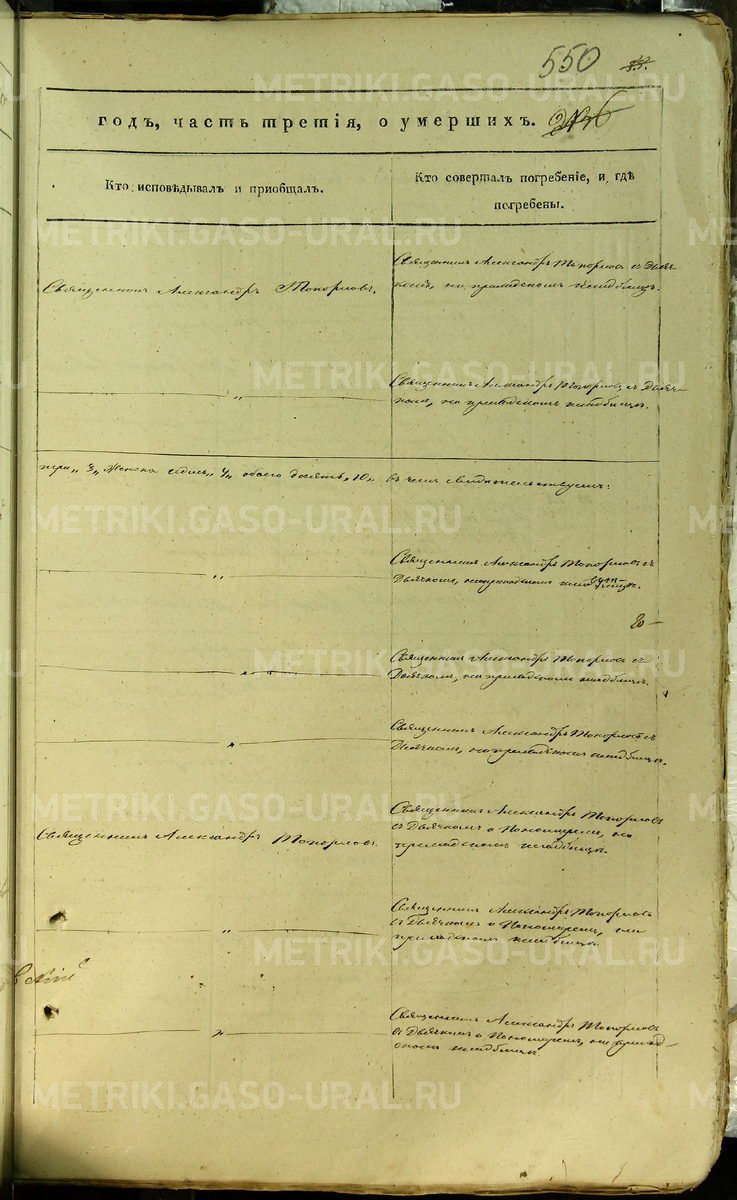 550
годъ, часть третія, о умершихъ.
Кто исповѣдывалъ и приобщалъ.
Кто совершалъ погребеніе, и гдѣ
погребены.
Священникъ Александръ Топорковъ.
Священникъ Александръ Топорковъ съ Дьяч-
комъ, на приходскомъ кладбищѣ.
Священникъ Александръ Топорковъ съ Дьяч-
комъ, на приходскомъ кладбищѣ.
три „3„ Женска седмь „7„ обоего десять „10„
въ чемъ свидѣтельствуемъ:
Священникъ Александръ Топорковъ съ
Дьячкомъ, на приходскомъ кладбищѣ.
Священникъ Александръ Топорковъ съ
Дьячкомъ, на приходскомъ кладбищѣ.
Священникъ Александръ Топорковъ съ
Дьячкомъ, на приходскомъ кладбищѣ.
Священникъ Александръ Топорковъ.
Священникъ Александръ Топорковъ
съ Дьячкомъ и Пономаремъ, на
приходскомъ кладбищѣ.
Священникъ Александръ Топорковъ
съ Дьячкомъ и Пономаремъ, на
приходскомъ кладбищѣ.
Священникъ Александръ Топорковъ
съ Дьячкомъ и Пономаремъ, на приход-
скомъ кладбищѣ.
METRIKI.GASO-URAL.RU